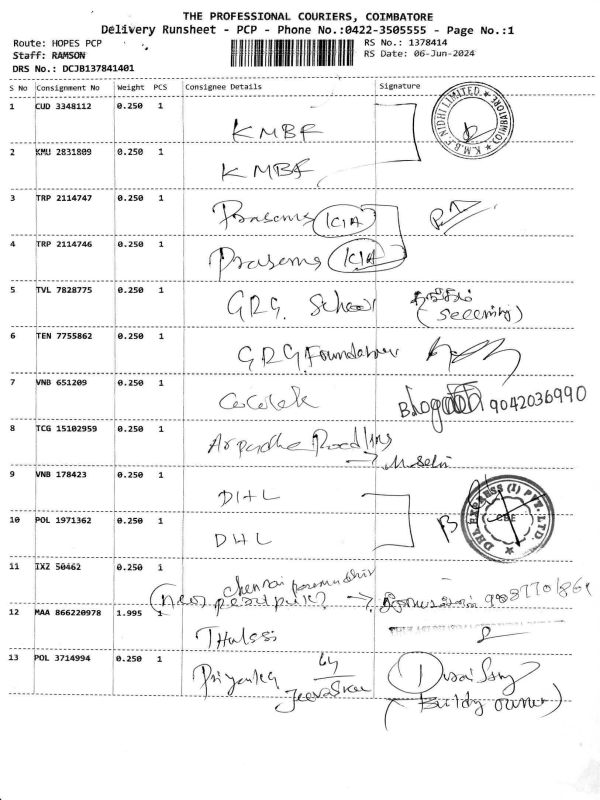 THE PROFESSIONAL COURIERS, COIMBATORE
Delivery Runsheet - PCP - Phone No.:0422-3505555 - Page No.:1
Route: HOPES PCP
RS No.: 1378414
Staff: RAMSON
RS Date: 06-Jun-2024
DRS No.: DCJB137841401
S No Consignment No Weight PCS Consignee Details Signature
1 CUD 3348112 0.250 1
KMBF
K.M.B.F NIDHI LIMITED ★ COIMBATORE ★
2 KMU 2831809 0.250 1
KMBF
3 TRP 2114747 0.250 1
Prasems KIA
4 TRP 2114746 0.250 1
Prasems KIA
5 TVL 7828775 0.250 1
GRG. School
6 TEN 7755862 0.250 1
GRG. Foundation
7 VNB 651209 0.250 1
9042036990
8 TCG 15102959 0.250 1
9 VNB 178423 0.250 1
DHL
DHL EXPRESS (I) PVT. LTD. ★
10 POL 1971362 0.250 1
DHL
11 IXZ 50462 0.250 1
chennai
12 MAA 866220978 1.995 1
Thulasi
13 POL 3714994 0.250 1
Priyanka
(Buildg owner)